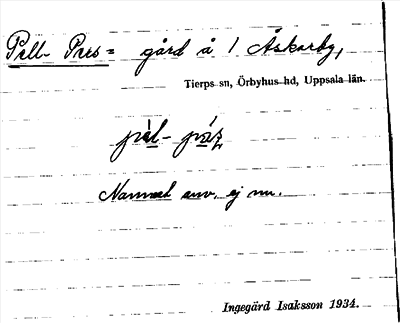 Pell- Pers = gård å 1 Åskarby,
Tierps sn, Örbyhus hd, Uppsala län.
Namnet anv. ej nu.
Ingegärd Isaksson 1934.